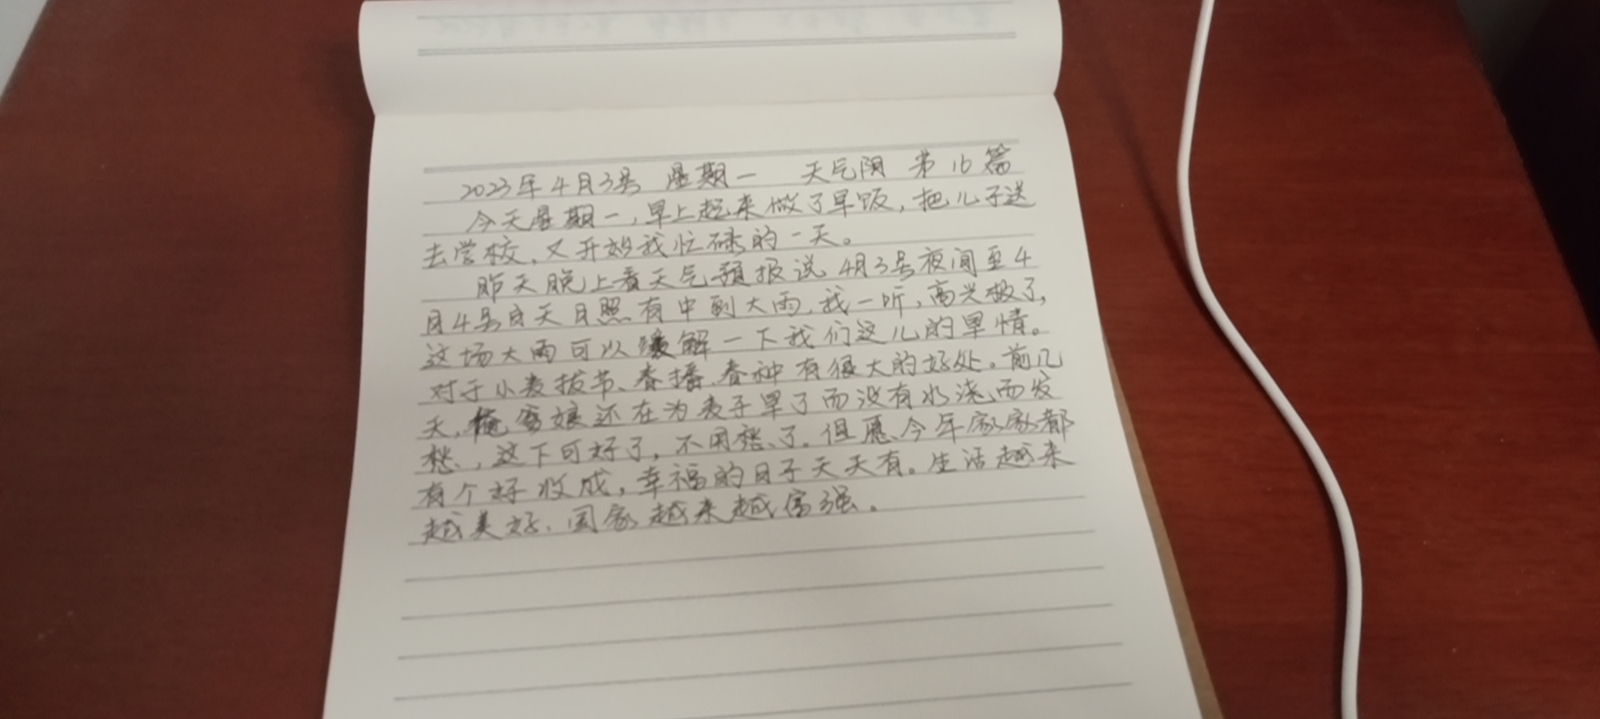 2023年4月3号 星期一 天气阴 第16篇
今天星期一,早上起来做了早饭,把儿子送
去学校,又开始我忙碌的一天。
昨天晚上看天气预报说4月3号夜间至4
月4号白天日照有中到大雨,我一听,高兴极了,
这场大雨可以缓解一下我们这儿的旱情。
对于小麦拔节、春播、春种有很大的好处。前几
天,俺爹娘还在为麦子旱了而没有水浇而发
愁,这下可好了,不用愁了。但愿今年家家都
有个好收成,幸福的日子天天有。生活越来
越美好,国家越来越富强。